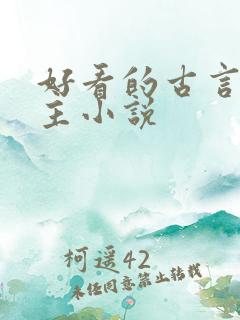 好看的古言
主小说
柯遥42
未经同意禁止转载